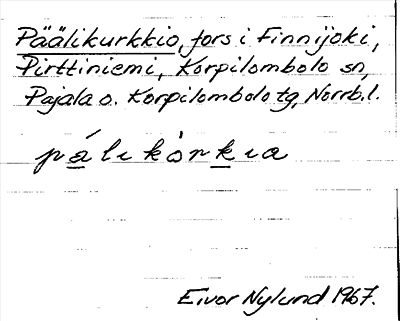 Päälikurkkio, fors i Finnijoki,
Pirttiniemi, Korpilombolo sn,
Pajala o. Korpilombolo tg, Norrb.l.
pálikòrkia
Eivor Nylund 1967.